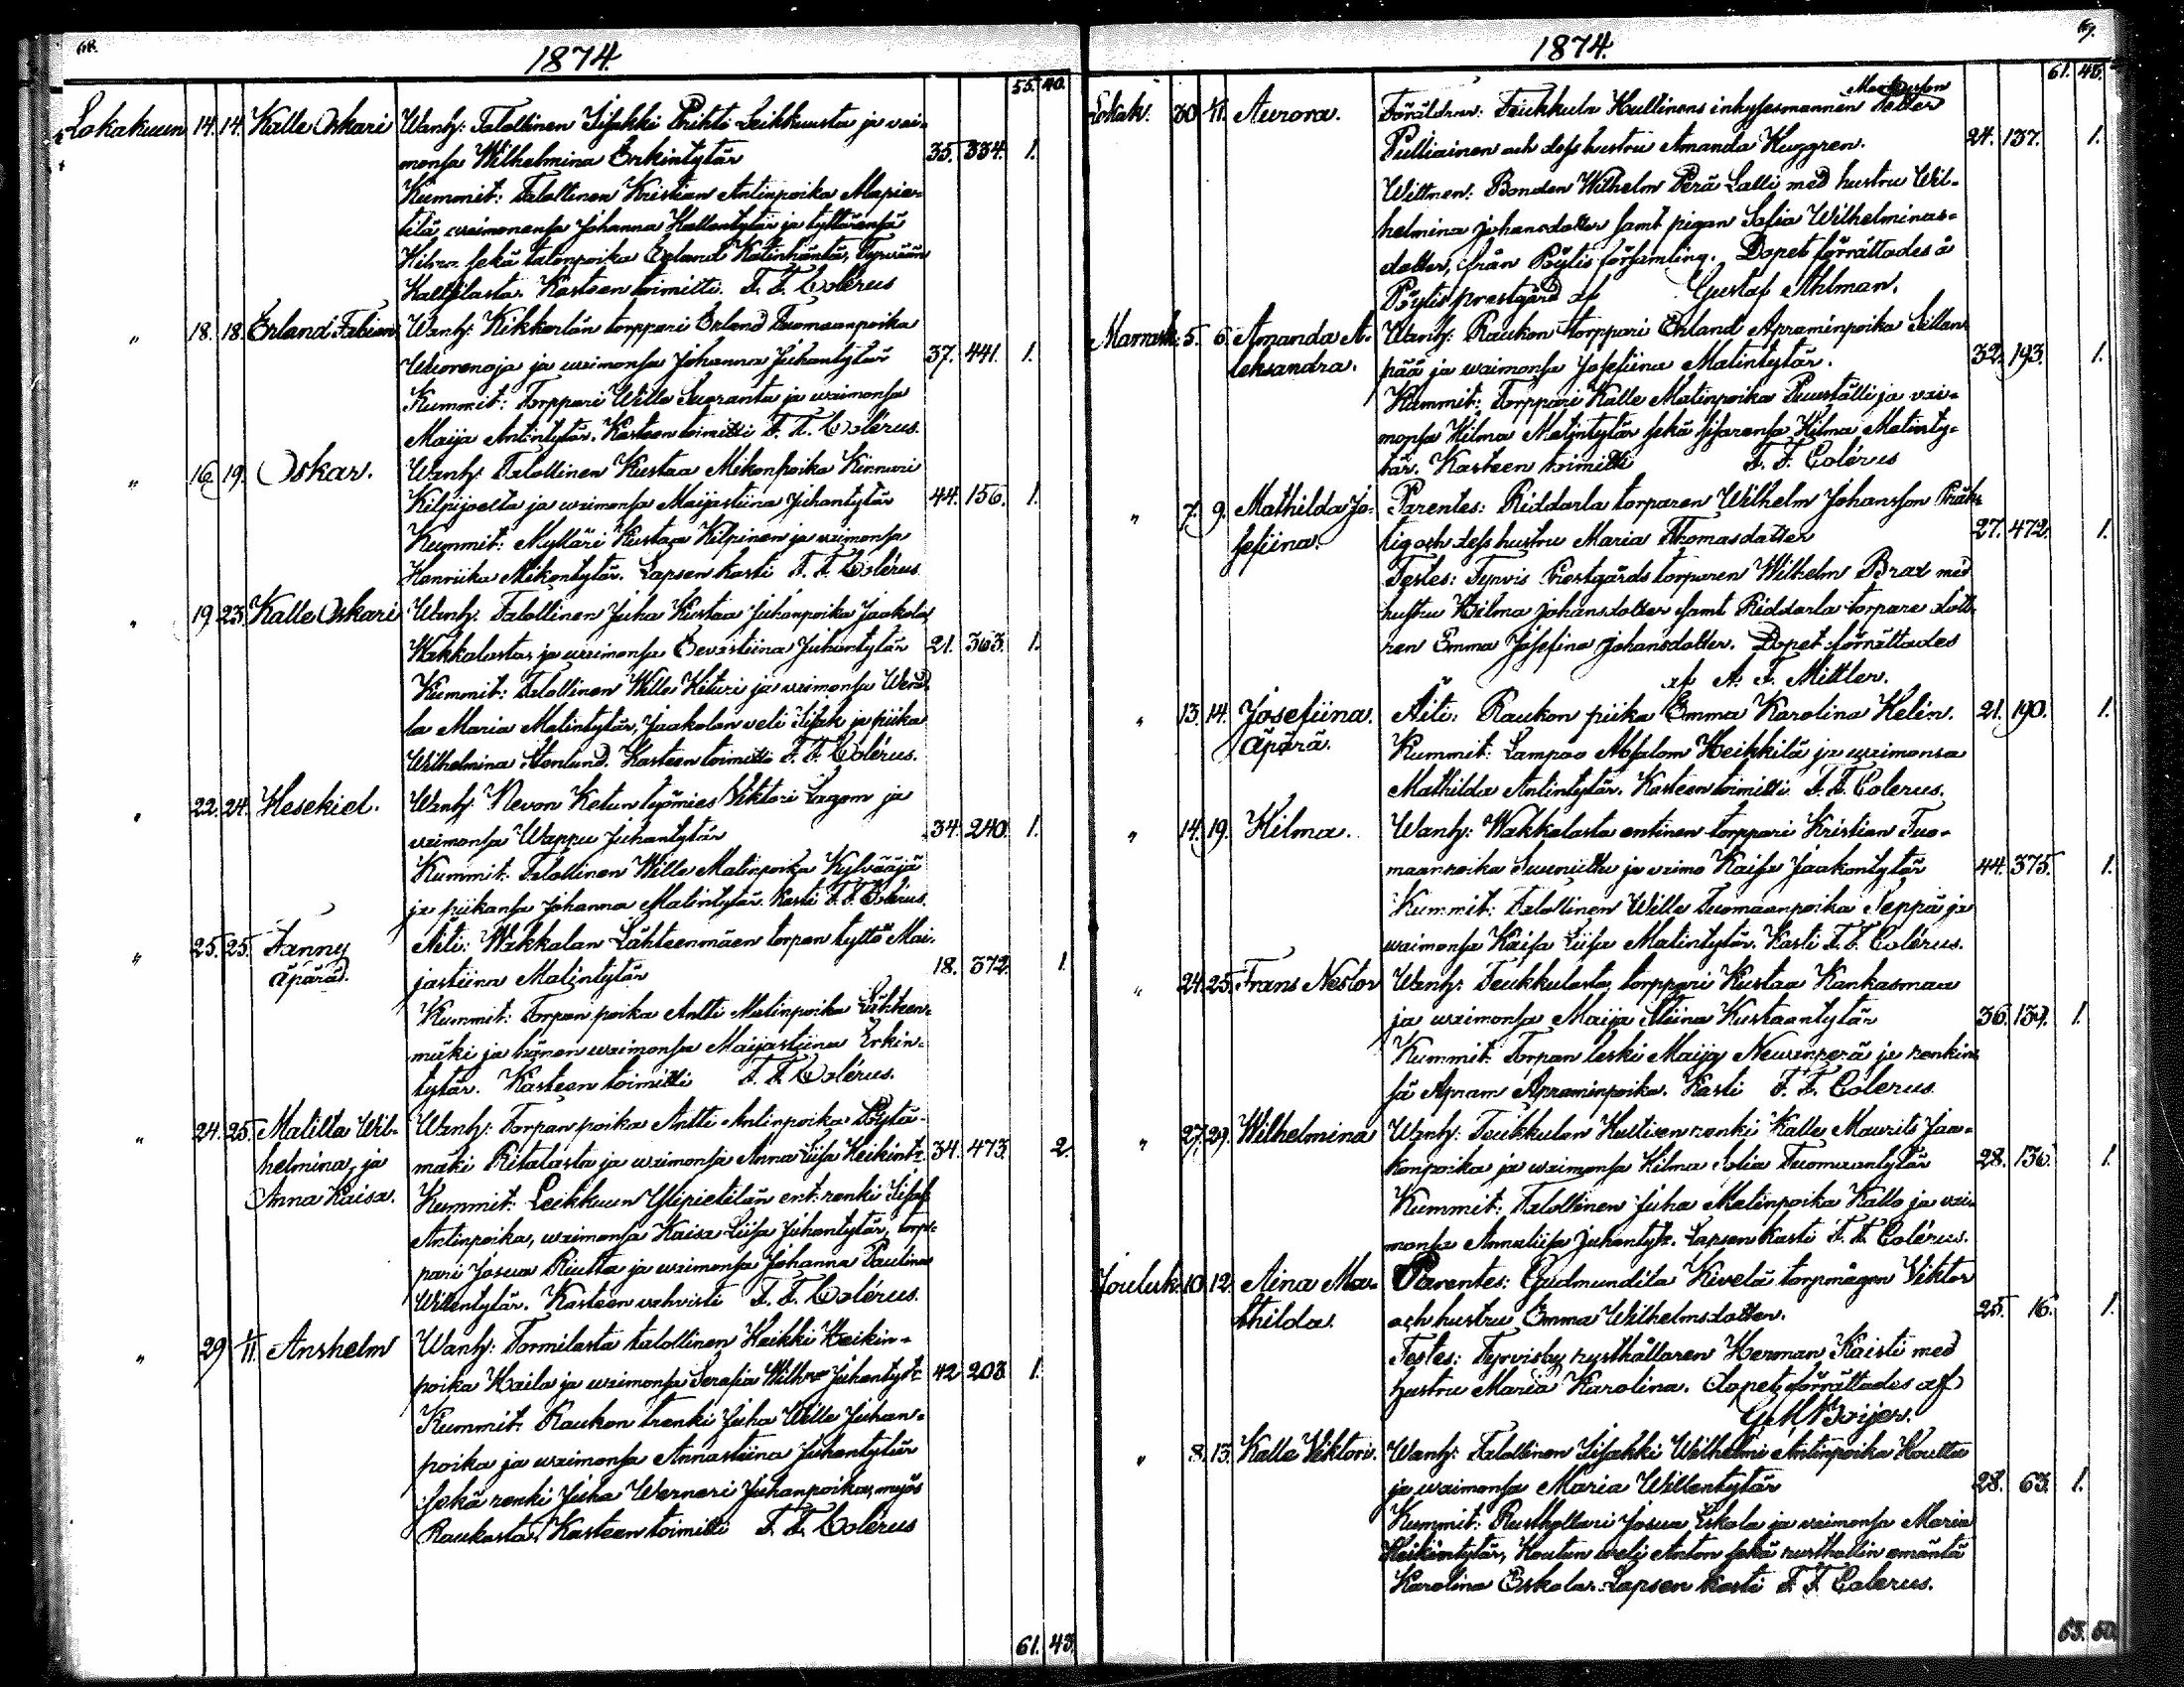 68.
1874.
55. 40.
Lokakuun 14. 14. Kalle Oskari Wanh: Talollinen Iisakki Prihti Leikkuusta ja vai-
monsa Wilhelmina Erkintytär 35. 334. 1.
Kummit: Talollinen Kristian Antinpoika
waimonensa Johanna Kallentytär ja tyttärensä
sekä talonpoika Erland
Kasteen toimitti F. F. Colérus
" 18. 18. Erland Fabian Wanh: Kikkerlän torppari Erland Tuomaanpoika
Wuorenoja ja waimonsa Johanna Juhantytär 37. 441. 1.
Kummit: Torppari Wille Suoranta ja waimonsa
Maija Antintytär. Kasteen toimitti F. F. Colérus.
" 16. 19. Oskar. Wanh: Talollinen Kustaa Mikonpoika Kinnari
Kilpijoelta ja waimonsa Maijastiina Juhantytär 44. 156. 1.
Kummit: Mylläri Kustaa Kilpinen ja waimonsa
Henriika Mikontytär. Lapsen kasti F. F. Colérus
" 19. 23. Kalle Oskari Wanh: Talollinen Juha Kustaa Juhanpoika Jaakola
Wakkalasta, ja waimonsa Eevastiina Juhantytär 21. 363. 1.
Kummit: Talollinen Wille Kituri ja waimonsa Wend-
la Maria Matintytär, Jaakolan veli Iisak ja piika
Wilhelmina Kasteen toimitti F. F. Colérus.
" 22. 24. Hesekiel. Wanh: Nevon Ketun työmies Viktori Lagom ja
vaimonsa Wappu Juhantytär 34. 240. 1.
Kummit: Talollinen Wille Matinpoika Kylvääjä
ja piikansa Johanna Matintytär. Kasti F. F. Colérus.
" 25. 25. Fanny Äiti: Wakkalan Lähteenmäen torpan tyttö Mai-
äpärä. jastiina Matintytär 18. 372. 1.
Kummit: Torpan poika Antti Matinpoika Lähteen-
mäki ja hänen waimonsa Maijastiina Erkin-
tytär. Kasteen toimitti F. F. Colérus.
" 24. 25. Matilta Wil- Wanh: Torpan poika Antti Antinpoika Pöytä-
helmina, ja mäki Ritalasta ja waimonsa Anna Liisa Heikint: 34. 473. 2.
Anna Kaisa. Kummit: Leikkuun Ylipietilän ent: renki Iisak
Antinpoika, waimonsa Kaisa Liisa Juhantytär, torp-
pari Josua Riutta ja waimonsa Johanna Paulina
Willentytär. Kasteen vahvisti F. F. Colérus.
" 29 1/11. Anshelm Wanh: Tormilasta talollinen Heikki Heikin-
poika Haila ja waimonsa Serafia Juhantyt: 42 203. 1.
Kummit: Raukon trenki Juha Wille Juhan-
poika ja waimonsa Annastiina Juhantytär
sekä renki Juha Werneri Juhanpoika, myös
Raukosta. Kasteen toimitti F. F. Colérus
61. 43.
69.
1874.
61. 43.
Lokak. 30 1/11. Aurora. Föräldrar: Teukkula Hullinens inhysesmannen
Pulliainen och dess hustru Amanda Huggren. 24. 137. 1.
Wittnen: Bonden Wilhelm Perä Lalli med hustru Wil-
helmina Johansdotter samt pigan Sofia Wilhelminas-
dotter, från Pöytis församling. Dopet förrättades å
Pöytis prestgård af Gustaf Ahlman.
Marrask. 5. 6. Amanda A- Wanh: Raukon torppari Erland Apraminpoika Sillan-
leksandra. pää ja waimonsa Josefiina Matintytär. 32. 193. 1.
Kummit: Torppari Kalle Matinpoika Puuställi ja vai-
monsa Hilma Matintytär sekä sisarensa Hilma Matinty-
tär. Kasteen toimitti F. F. Colérus
" 7. 9. Mathilda Jo- Parentes: Riddarla torparen Wilhelm Johansson Präk-
sefiina. tig och dess hustru Maria Thomasdotter 27. 472. 1.
Testes: Tyrvis Prestgårds torparen Wilhelm Brax med
hustru Hilma Johansdotter samt Riddarla torpare dott-
ren Emma Josefina Johansdotter. Dopet förrättades
af A. F. Mittler.
" 13. 14. Josefiina. Äiti: Raukon piika Emma Karolina Helin. 21. 190. 1.
Äpärä. Kummit: Lampao Absalom Heikkilä ja waimonsa
Mathilda Antintytär. Kasteen toimitti F. F. Colerus.
" 14. 19. Hilma. Wanh: Wakkalasta entinen torppari Kristian Tuo-
maanpoika Suuniittu ja vaimo Kaisa Jaakontytär 44. 375. 1.
Kummit: Talollinen Wille Tuomaanpoika Seppä ja
waimonsa Kaisa Liisa Matintytär. Kasti F. F. Colérus.
" 24. 25. Frans Nestor Wanh: Teukkulasta torppari Kustaa Kankasmaa
ja waimonsa Maija Stiina Kustaantytär 36. 139. 1.
Kummit: Torpan leski Maija Nevanperä ja renkin-
sä Apram Apraminpoika. Kasti F. F. Colerus.
" 27. 29. Wilhelmina Wanh: Teukkulan Hullisen renki Kalle Maurits Jaa-
konpoika ja waimonsa Hilma Sofia Tuomaantytär 28. 136. 1.
Kummit: Talollinen Juha Matinpoika Kallo ja vai-
monsa Annaliisa Juhantyt:. Lapsen kasti F. F. Colérus.
Jouluk. 10. 12. Aina Ma- Parentes: Gudmundila Kivelä torpmågen Viktor
thilda. och hustru Emma Wilhelmsdotter. 25. 16. 1.
Testes: Tyrvisby rusthållaren Herman Kaisti med
hustru Maria Karolina. Dopet förrättades af
" 8. 13. Kalle Viktori. Wanh: Talollinen Iisakki Wilhelmi Antinpoika Koutta
ja waimonsa Maria Willentytär 28. 63. 1.
Kummit: Rusthollari Josua Eskola ja vaimonsa Maria
Heikintytär, Koutun veli Anton sekä rusthollin emäntä
Karolina Eskola. Lapsen kasti F. F. Colerus.
63. 50.